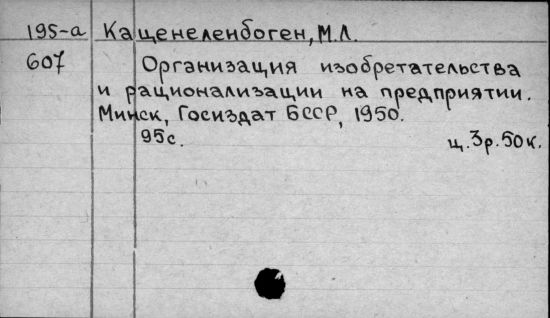 195-а Каценеленбоген, М.Л.
607 Организация изобретательства
и рационализации на предприятии.
Минск, Госиздат БССР, 1950.
95с. ц.3р.50к.